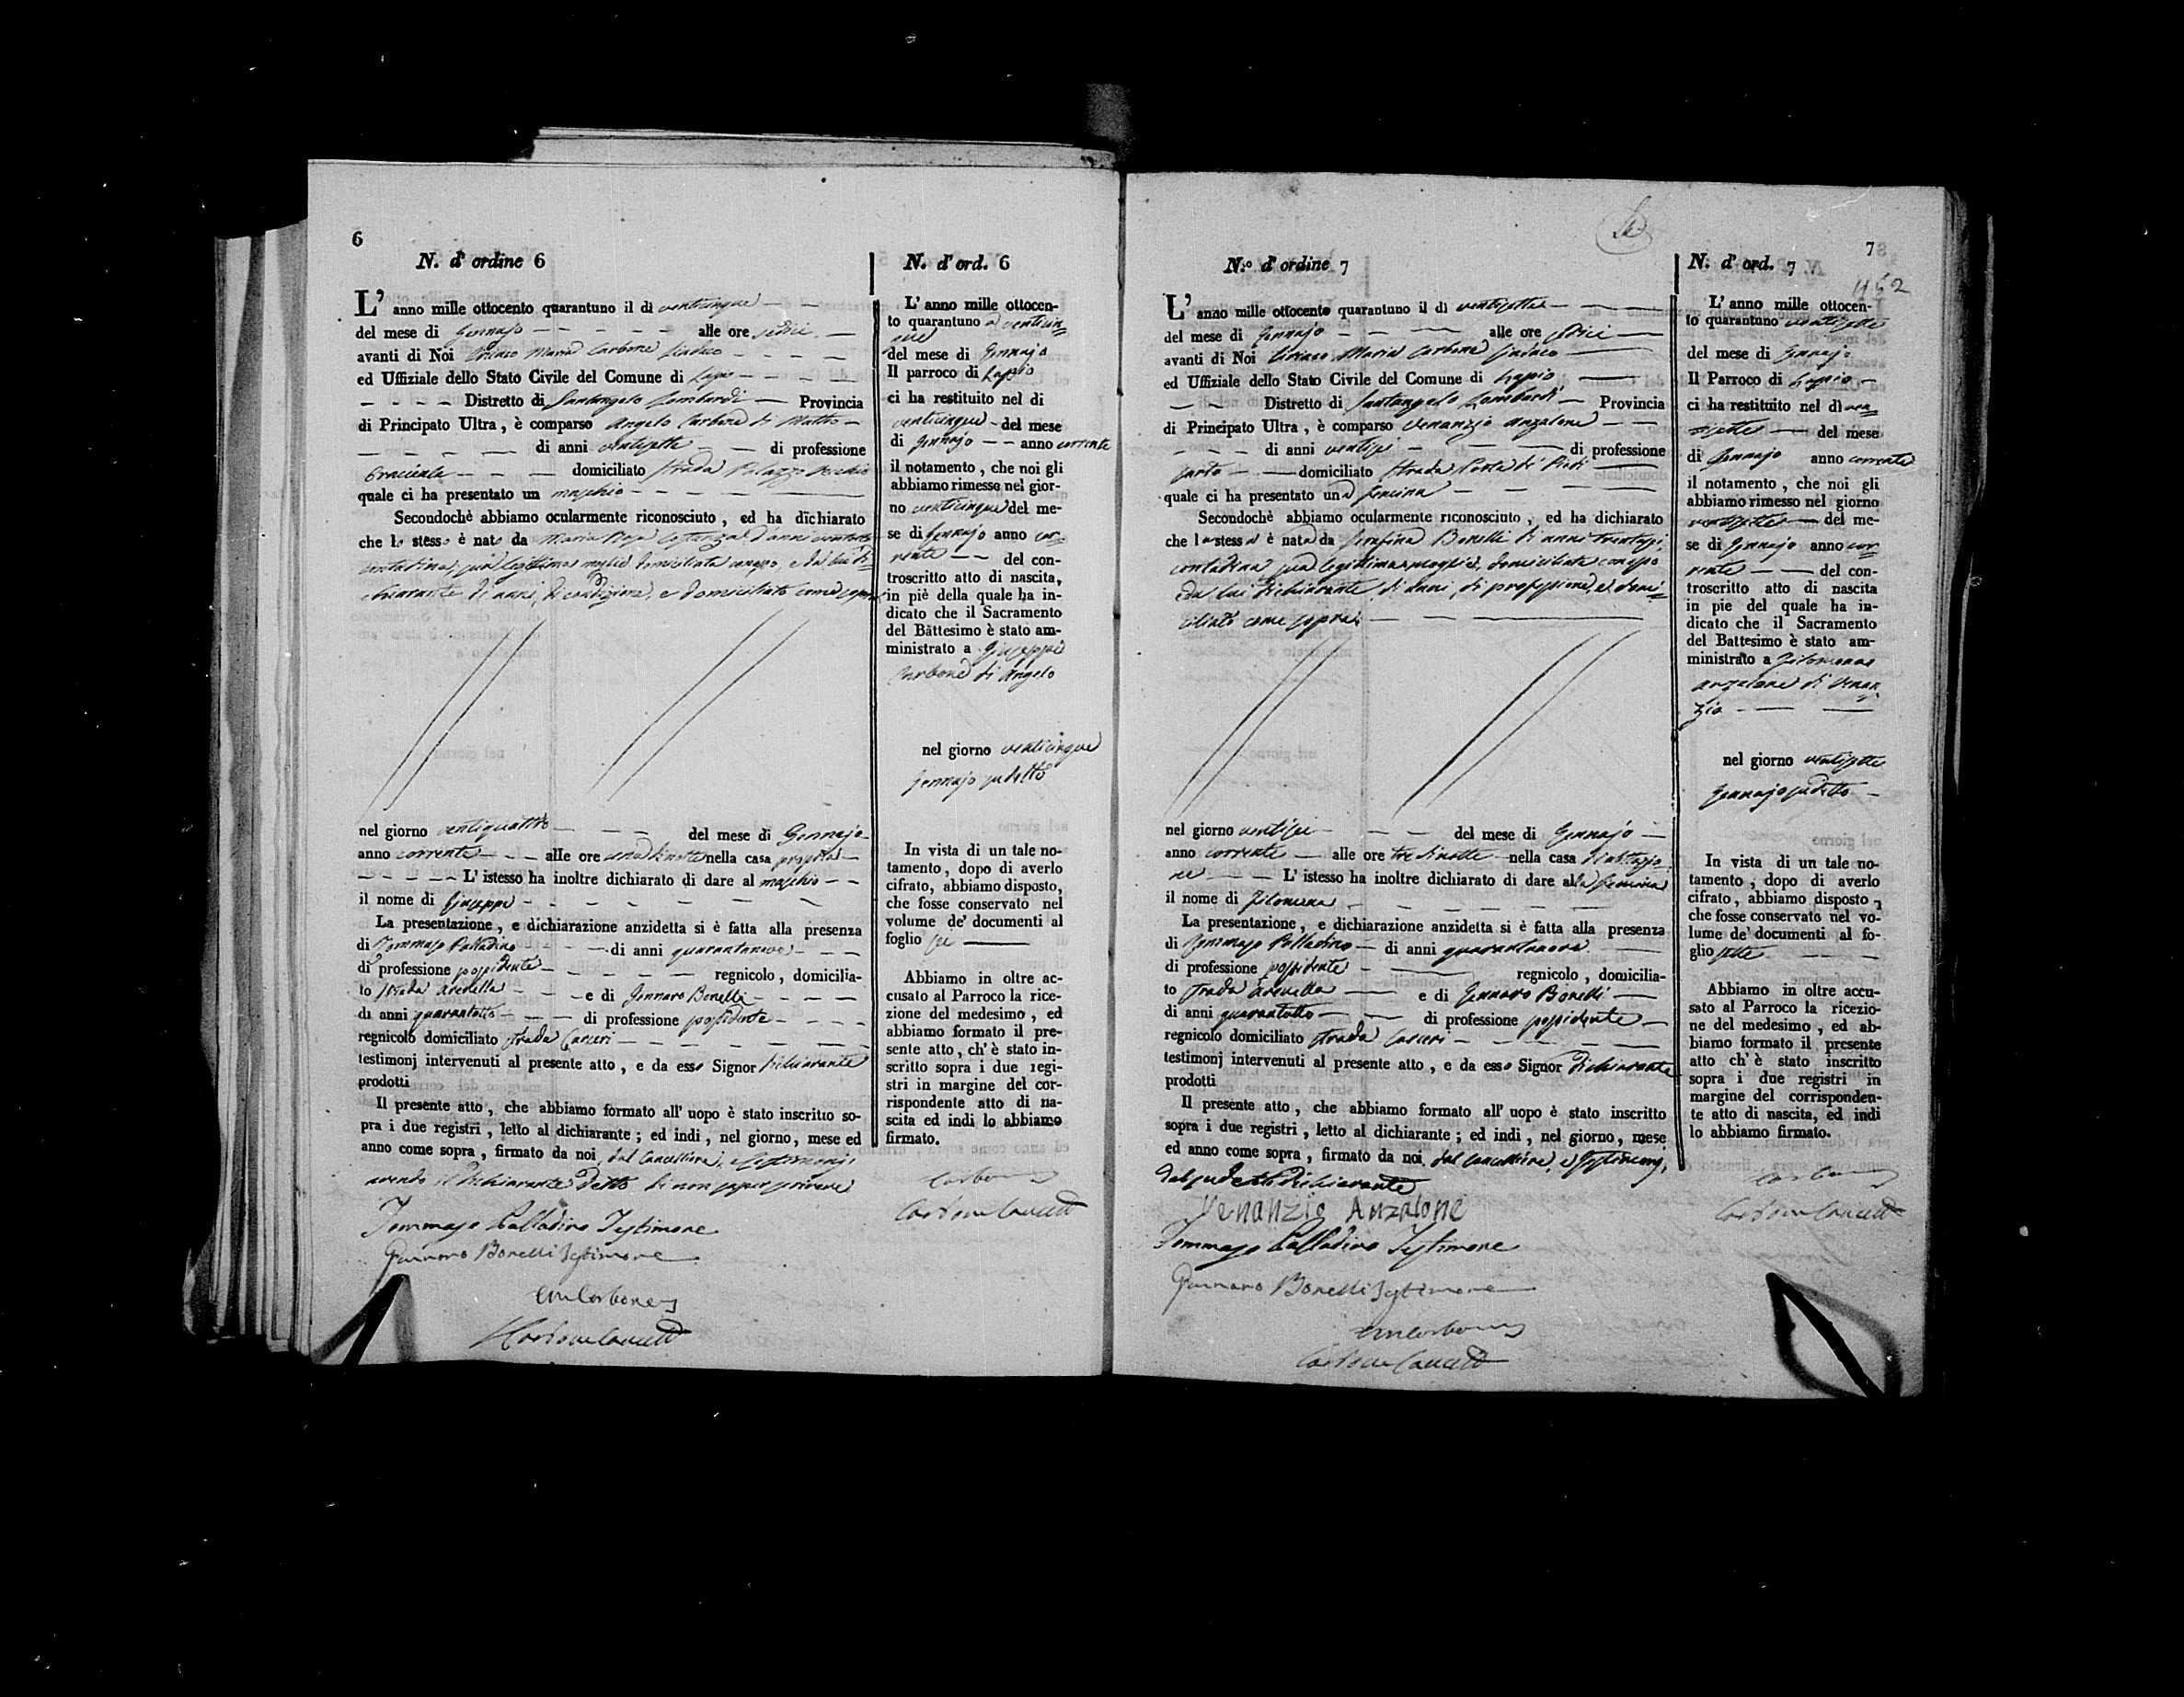 6
N. d' ordine 6
L' anno mille ottocento quarantuno il di venticinque
del mese di Gennajo alle ore sedici
avanti di Noi Ciriaco Maria Carbone Sindaco
ed Uffiziale dello Stato Civile del Comune di Lapio
Distretto di Santangelo Lombardi Provincia
di Principato Ultra, è comparso Angelo Carbone di Matteo
di anni ventisette di professione
bracciale domiciliato strada Palazzo Vecchio
quale ci ha presentato un maschio
Secondochè abbiamo ocularmente riconosciuto, ed ha dichiarato
che lo stesso è nato da Maria Rosa Costanza d'anni
contadina, sua legittima moglie domiciliata con esso, e da lui di=
chiarante di anni, di condizione, e domiciliato come sopra
nel giorno ventiquattro del mese di Gennajo
anno corrente alle ore una di notte nella casa propria
L' istesso ha inoltre dichiarato di dare al maschio
il nome di Giuseppe
La presentazione, e dichiarazione anzidetta si è fatta alla presenza
di Tommaso Palladino di anni quarantanove
di professione possidente regnicolo, domicilia-
to strada Aredella e di Gennaro Bonelli
di anni quarantotto di professione possidente
regnicolo domiciliato strada Carceri
testimonj intervenuti al presente atto, e da esso Signor dichiarante
prodotti
Il presente atto, che abbiamo formato all' uopo è stato inscritto so-
pra i due registri, letto al dichiarante; ed indi, nel giorno, mese ed
anno come sopra, firmato da noi, dal Cancelliere, e testimonj,
avendo il dichiarante detto di non saper scrivere
Tommaso Palladino Testimone
Gennaro Bonelli Testimone
CMCarbone
Carbone Cancell
N. d' ord. 6
L' anno mille ottocen-
to quarantuno a venticin=
que
del mese di Gennajo
Il parroco di Lapio
ci ha restituito nel di
venticinque del mese
di Gennajo anno corrente
il notamento, che noi gli
abbiamo rimesso nel gior-
no venticinque del me-
se di Gennajo anno cor=
rente del con-
troscritto atto di nascita,
in piè della quale ha in-
dicato che il Sacramento
del Battesimo è stato am-
ministrato a Giuseppe
Carbone di Angelo
nel giorno venticinque
Gennajo sudetto
In vista di un tale no-
tamento, dopo di averlo
cifrato, abbiamo disposto,
che fosse conservato nel
volume de' documenti al
foglio sei
Abbiamo in oltre ac-
cusato al Parroco la rice-
zione del medesimo, ed
abbiamo formato il pre-
sente atto, ch' è stato in-
scritto sopra i due regi-
stri in margine del cor-
rispondente atto di na-
scita ed indi lo abbiamo
firmato.
Carbone
Carbone Cancell
7
452
N.o d' ordine 7
L' anno mille ottocento quarantuno il di ventisette
del mese di Gennajo alle ore sedici
avanti di Noi Ciriaco Maria Carbone Sindaco
ed Uffiziale dello Stato Civile del Comune di Lapio
Distretto di Santangelo Lombardi Provincia
di Principato Ultra, è comparso Venanzio Anzalone
di anni ventisei di professione
sarto domiciliato strada Costa di Piedi
quale ci ha presentato una femina
Secondochè abbiamo ocularmente riconosciuto, ed ha dichiarato
che la stessa è nata da Serafina Bonelli di anni trentasei,
contadina sua legittima moglie, domiciliata con esso
e da lui dichiarante di anni, di professione, e domi=
ciliato come sopra
nel giorno ventisei del mese di Gennajo
anno corrente alle ore tre di notte nella casa di abitazio=
ne L' istesso ha inoltre dichiarato di dare alla femina
il nome di Filomena
La presentazione, e dichiarazione anzidetta si è fatta alla presenza
di Tommaso Palladino di anni quarantanove
di professione possidente regnicolo, domicilia-
to strada Aredella e di Gennaro Bonelli
di anni quarantotto di professione possidente
regnicolo domiciliato strada Carceri
testimonj intervenuti al presente atto, e da esso Signor dichiarante
prodotti
Il presente atto, che abbiamo formato all' uopo è stato inscritto
sopra i due registri, letto al dichiarante; ed indi, nel giorno, mese
ed anno come sopra, firmato da noi, dal Cancelliere, e testimonj,
dal sudetto dichiarante
Venanzio Anzalone
Tommaso Palladino Testimone
Gennaro Bonelli Testimone
CMCarbone
Carbone Cancell
N. d' ord. 7
L' anno mille ottocen-
to quarantuno ventisette
del mese di Gennajo
Il Parroco di Lapio
ci ha restituito nel di ven=
tisette del mese
di Gennajo anno corrente
il notamento, che noi gli
abbiamo rimesso nel giorno
ventisette del me-
se di Gennajo anno cor=
rente del con-
troscritto atto di nascita
in pie del quale ha in-
dicato che il Sacramento
del Battesimo è stato am-
ministrato a Filomena
Anzalone di Venan=
zio
nel giorno ventisette
Gennajo sudetto
In vista di un tale no-
tamento, dopo di averlo
cifrato, abbiamo disposto,
che fosse conservato nel vo-
lume de' documenti al fo-
glio sette
Abbiamo in oltre accu-
sato al Parroco la ricezio-
ne del medesimo, ed ab-
biamo formato il presente
atto ch' è stato inscritto
sopra i due registri in
margine del corrisponden-
te atto di nascita, ed indi
lo abbiamo firmato.
Carbone
Carbone Cancell